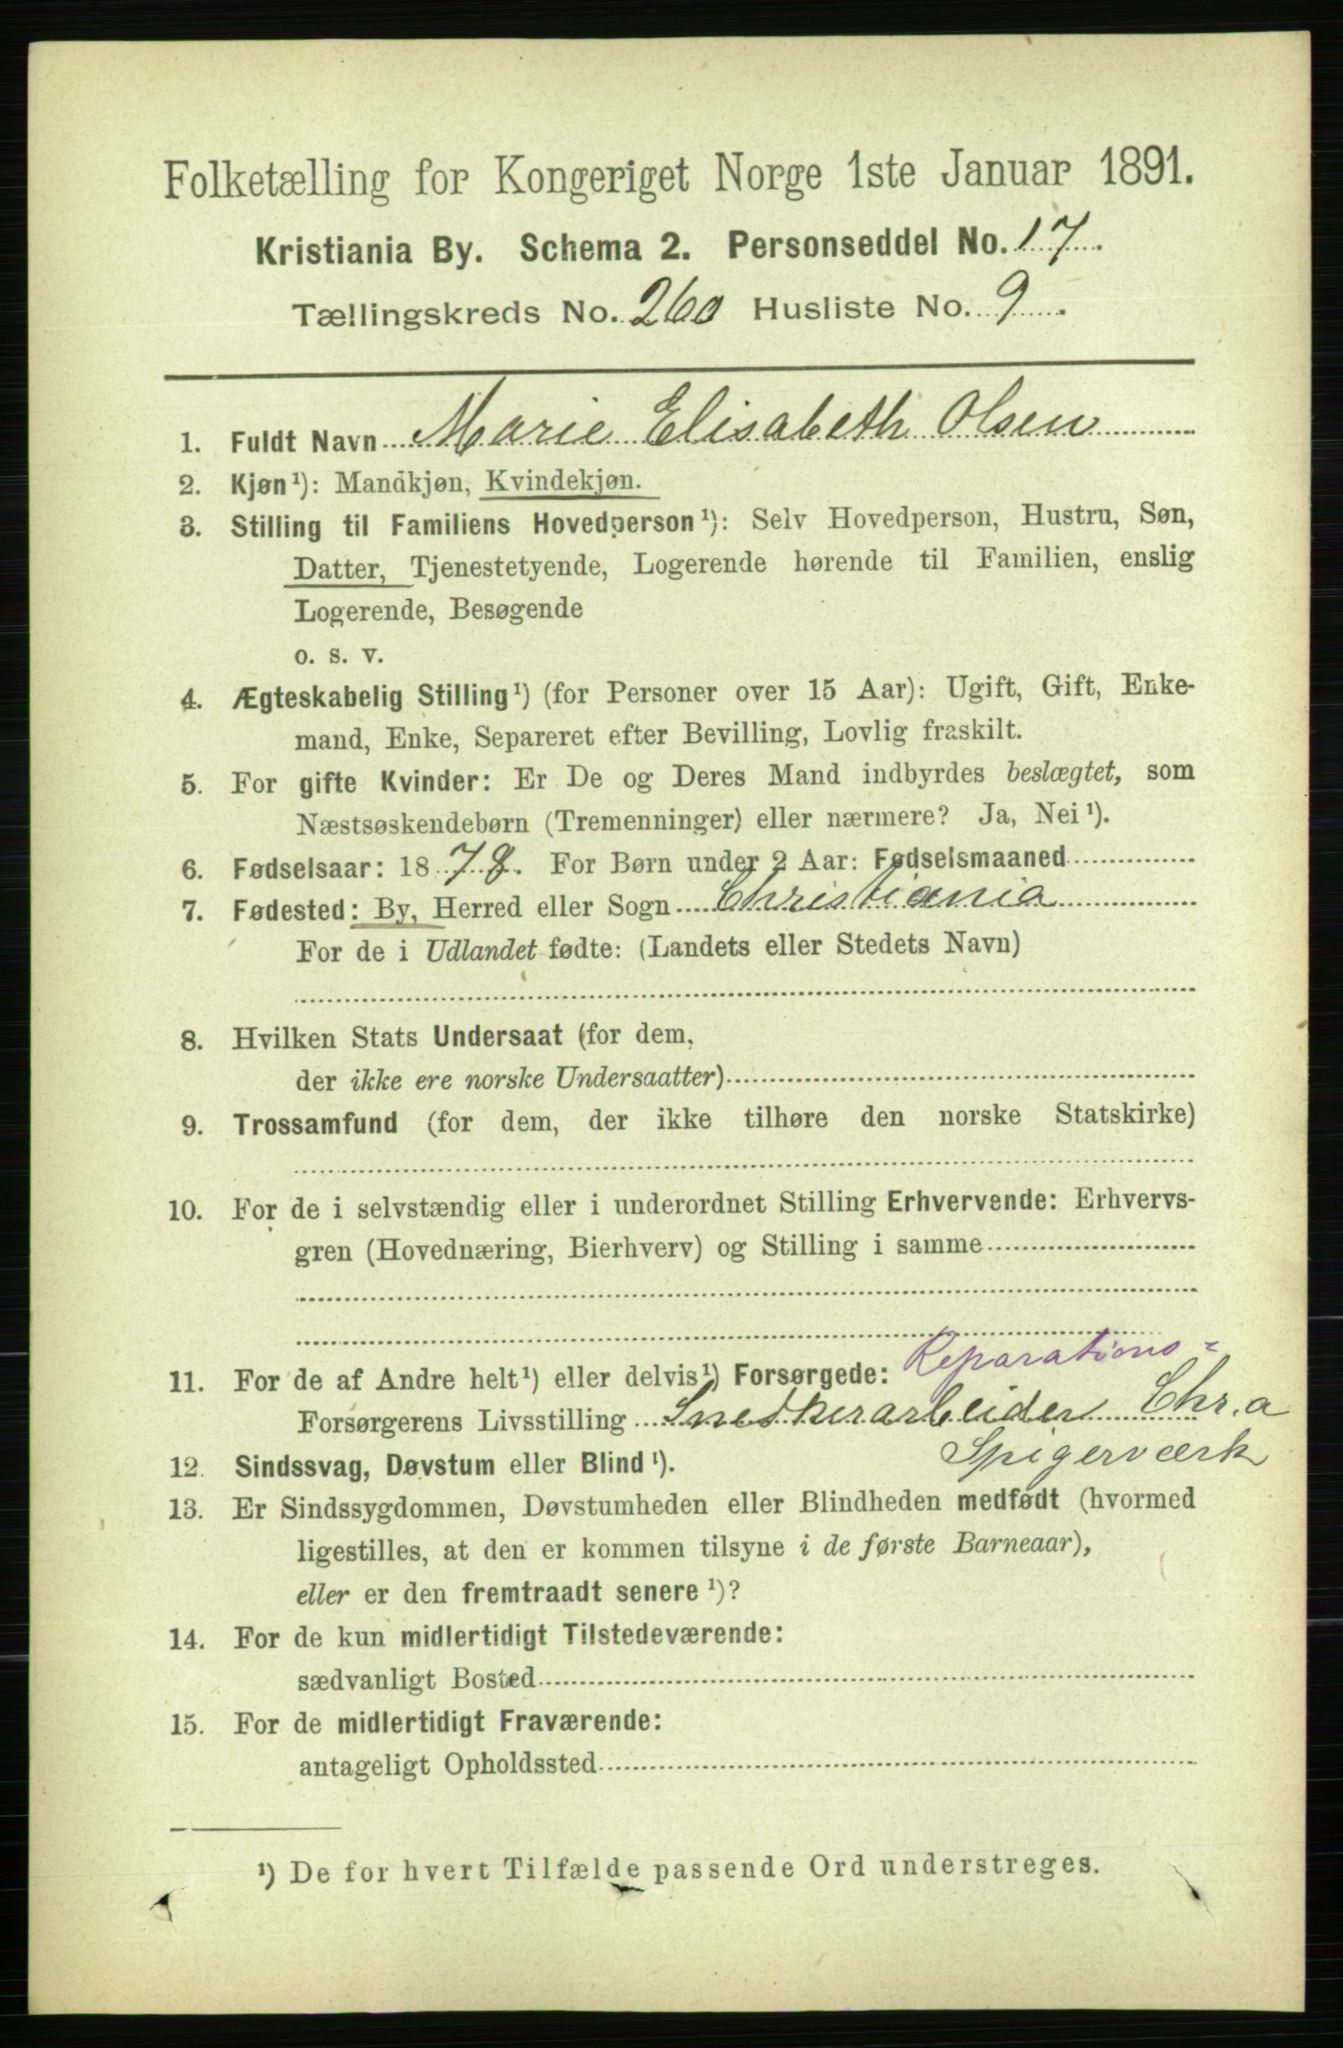 Folketælling for Kongeriget Norge 1ste Januar 1891.
Kristiania By. Schema 2. Personseddel No. 17.
Tællingskreds No. 260 Husliste No. 9.
1. Fuldt Navn Marie Elisabeth Olsen
2. Kjøn ¹): Mandkjøn, Kvindekjøn.
3. Stilling til Familiens Hovedperson ¹): Selv Hovedperson, Hustru, Søn,
Datter, Tjenestetyende, Logerende hørende til Familien, enslig
Logerende, Besøgende
o. s. v.
4. Ægteskabelig Stilling ¹) (for Personer over 15 Aar): Ugift, Gift, Enke-
mand, Enke, Separeret efter Bevilling, Lovlig fraskilt.
5. For gifte Kvinder: Er De og Deres Mand indbyrdes beslægtet, som
Næstsøskendebørn (Tremenninger) eller nærmere? Ja, Nei ¹).
6. Fødselsaar: 1878. For Børn under 2 Aar: Fødselsmaaned
7. Fødested: By, Herred eller Sogn Christiania
For de i Udlandet fødte: (Landets eller Stedets Navn)
8. Hvilken Stats Undersaat (for dem,
der ikke ere norske Undersaatter)
9. Trossamfund (for dem, der ikke tilhøre den norske Statskirke)
10. For de i selvstændig eller i underordnet Stilling Erhvervende: Erhvervs-
gren (Hovednæring, Bierhverv) og Stilling i samme
11. For de af Andre helt ¹) eller delvis ¹) Forsørgede: Reparations=
Forsørgerens Livsstilling Snedkerarbeider Chr.a
Spigerværk
12. Sindssvag, Døvstum eller Blind ¹).
13. Er Sindssygdommen, Døvstumheden eller Blindheden medfødt (hvormed
ligestilles, at den er kommen tilsyne i de første Barneaar),
eller er den fremtraadt senere ¹)?
14. For de kun midlertidigt Tilstedeværende:
sædvanligt Bosted
15. For de midlertidigt Fraværende:
antageligt Opholdssted
¹) De for hvert Tilfælde passende Ord understreges.